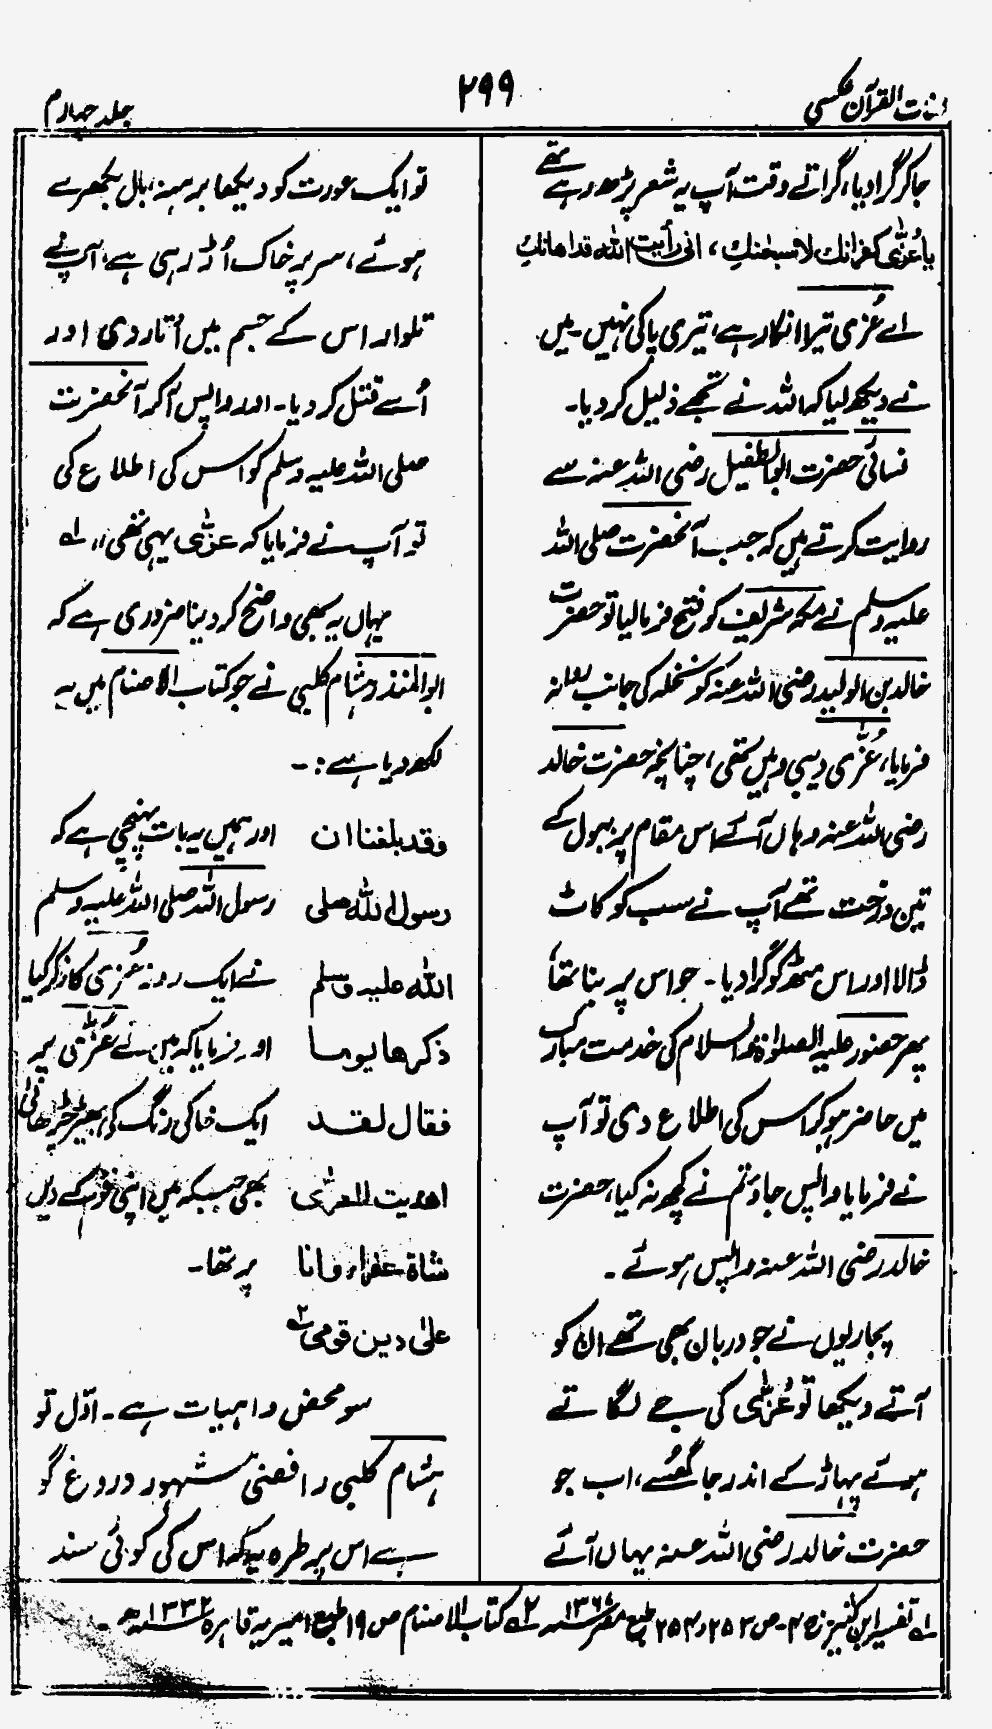 لغات القرآن عکسی
۲۹۹
جلد چہارم
جاکر گرا دیا، گراتے وقت آپ یہ شعر پڑھ رہے تھے
یا عُزّٰی کفرانك لا سبحٰنكِ ، انی رأیت اللّٰہ قد اھانكِ
اے عُزی تیرا انکار ہے، تیری پاکی نہیں۔ میں
نے دیکھ لیا کہ اللہ نے تجھے ذلیل کر دیا۔
نسائی حضرت ابوالطفیل رضی اللہ عنہ سے
روایت کرتے ہیں کہ جب آنحضرت صلی اللہ
علیہ وسلم نے مکہ شریف کو فتح فرمالیا تو حضرت
خالد بن الولید رضی اللہ عنہ کو نخلہ کی جانب روانہ
فرمایا، عُزّی دیبی وہیں تھی، چنانچہ حضرت خالد
رضی اللہ عنہ وہاں آئے اس مقام پر ببول کے
تین درخت تھے آپ نے سب کو کاٹ
ڈالا اور اس مٹھ کو گرا دیا۔ جو اس پر بنا تھا،
پھر حضور علیہ الصلوٰۃ والسلام کی خدمت مبارک
میں حاضر ہوکر اس کی اطلاع دی تو آپ
نے فرمایا واپس جاؤ تم نے کچھ نہ کیا، حضرت
خالد رضی اللہ عنہ واپس ہوئے۔
پجاریوں نے جو دربان بھی تھے ان کو
آتے دیکھا تو عُزّٰی کی جے لگاتے
ہوئے پہاڑ کے اندر جا گھُسے، اب جو
حضرت خالد رضی اللہ عنہ یہاں آئے
تو ایک عورت کو دیکھا برہنہ، بال بکھرے
ہوئے، سر پر خاک اُڑ رہی ہے، آپ نے
تلوار اس کے جسم میں اُتار دی اور
اُسے قتل کر دیا۔ اور واپس آکر آنحضرت
صلی اللہ علیہ وسلم کو اس کی اطلاع کی
تو آپ نے فرمایا کہ عزّٰی یہی تھی،، لہ
یہاں یہ بھی واضح کر دینا ضروری ہے کہ
ابوالمنذر ہشام کلبی نے جو کتاب الاصنام میں یہ
لکھ دیا ہے :۔
وقد بلغنا ان اور ہمیں یہ بات پہنچی ہے کہ
رسول اللّٰہ صلی رسول اللہ صلی اللہ علیہ وسلم
اللّٰہ علیہ وسلم نے ایک روز عُزی کا ذکر کیا
ذکرھا یوما اور فرمایا کہ میں نے عُزّٰی پر
فقال لقد ایک خاکی رنگ کی بھیڑ چڑھائی
اھدیت للعزّٰی تھی جبکہ میں اپنی قوم کے دین
شاۃ عفراء وانا پر تھا۔
علیٰ دین قومی ۲ہ
سو محض واہیات ہے۔ اوّل تو
ہشام کلبی رافضی مشہور دروغ گو
ہے اس پر طرہ یہ کہ اس کی کوئی سند
لہ تفسیر ابن کثیر ج ۴۔ ص ۲۵۳ و ۲۵۴ طبع مصر ۲ہ کتاب الاصنام ص ۱۹ طبع امیریہ قاہرہ ۱۳۳۲ھ۔